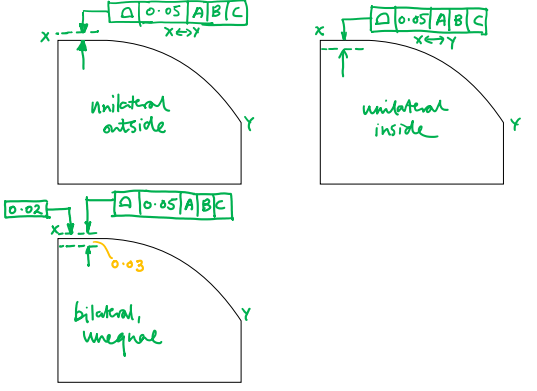 ⌓ 0.05 A B C
X↔Y
X
unilateral
outside
Y
⌓ 0.05 A B C
X↔Y
X
unilateral
inside
Y
0.02
⌓ 0.05 A B C
X
0.03
bilateral,
unequal
Y